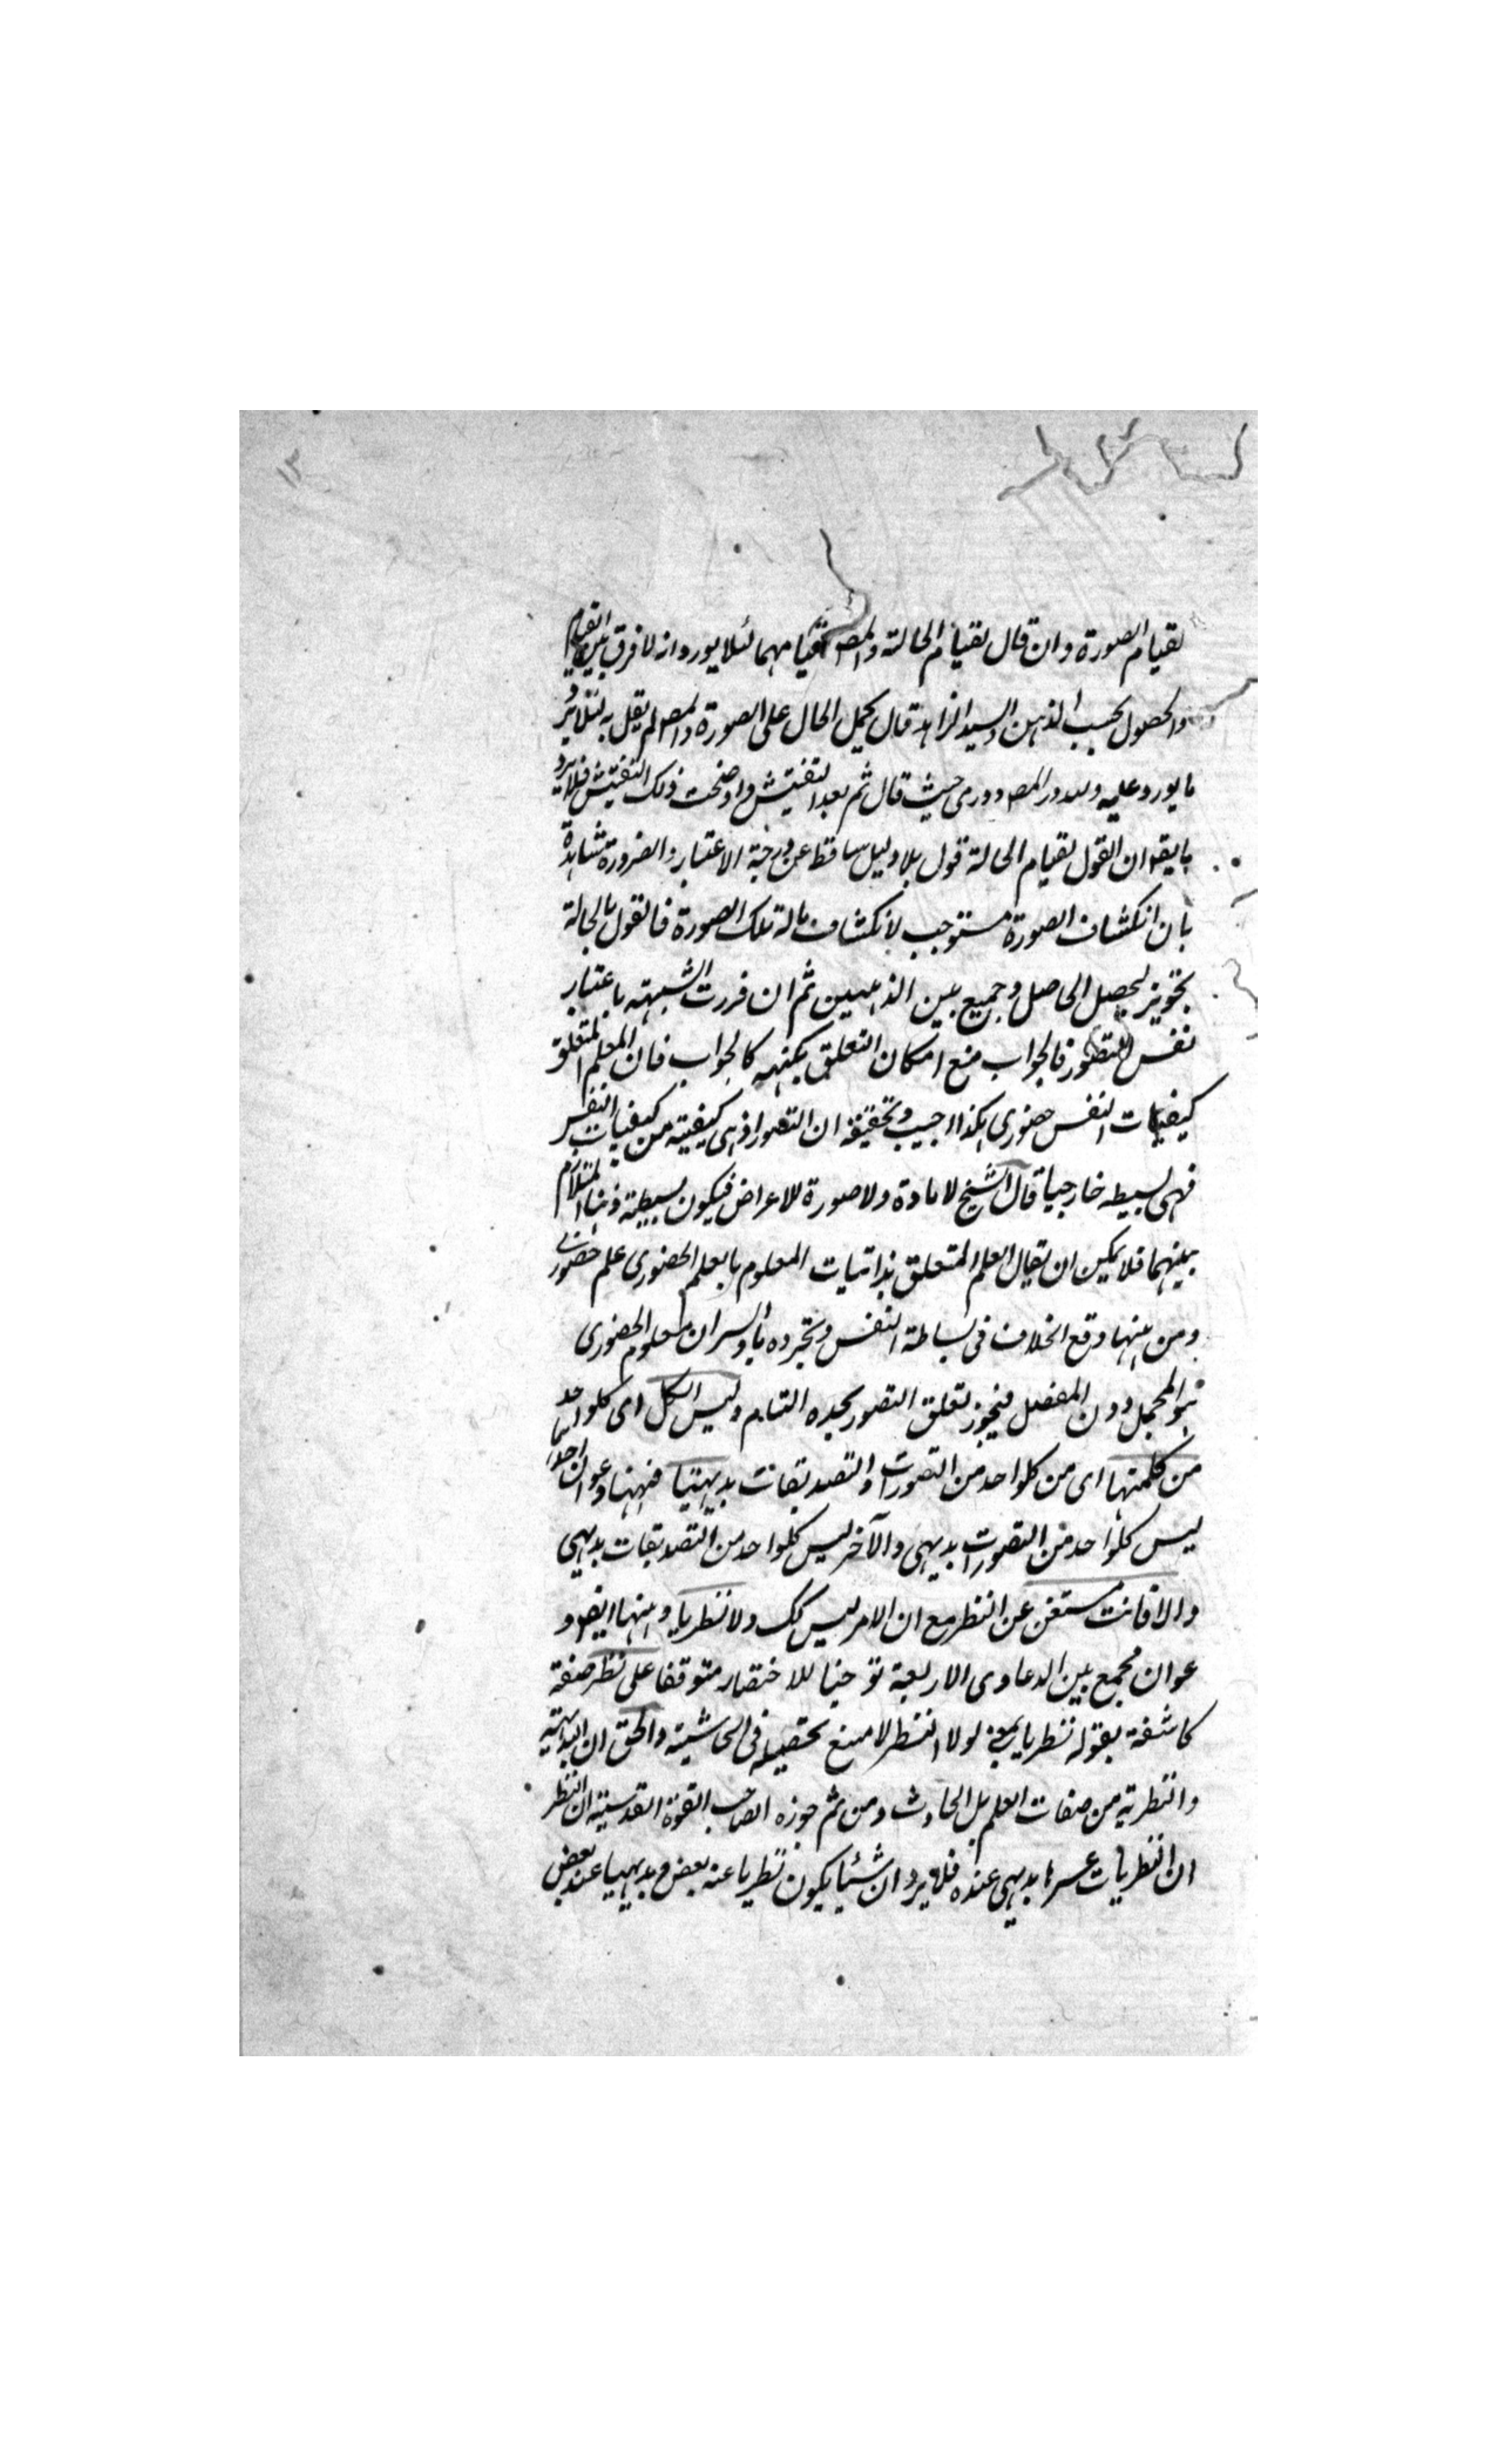 ١٣
بقيام الصورة وان قال بقيام الحالة والمصـ بقيامهما لئلا يورد انه لا فرق بين القيام
والحصول بحسب الذهن والسيد الزاهد قال بحمل الحال على الصورة والمصـ لم يقل به لئلا يرد
ما يورد عليه ولله در المصـ ودرى حيث قال ثم بعد التفتيش واوضحت ذلك التفتيش فلا يرد
ما يقـ ان القول بقيام الحالة قول بلا دليل ساقط عن درجة الاعتبار والضرورة شاهدة
بان انكشاف الصورة مستوجب لانكشاف ماله تلك الصورة فالقول بالحالة
تجويز لتحصيل الحاصل وجميع بين الذهبين ثم ان قررت الشبهة باعتبار
نفس التصور فالجواب منع امكان التعلق بكنهه كالجواب فان العلم المتعلق
كيفيات النفس حضورى هكذا اجيب وتحقيقه ان التصور اذ هى كيفية من كيفيات النفس
فهى بسيطه خارجيا قال الشيخ لا مادة ولا صورة للاعراض فيكون بسيطة ذهنا لتلازم
بينهما فلا يمكن ان يقال العلم المتعلق بذاتيات المعلوم بالعلم الحضورى علم حضورى
ومن ههنا وقع الخلاف فى بساطة النفس وتجرده والسر ان معلوم الحضورى
هو المجمل دون المفصل فيجوز تعلق التصور بحده التام وليس الكل اى كلواحد
من كلمتهما اى من كلواحد من التصورات والتصديقات بديهيا فههنا دعوان احدهما
ليس كلواحد من التصورات بديهى والآخر ليس كلواحد من التصديقات بديهى
والا فانت مستغن عن النظر مع ان الامر ليس كك ولا نظريا وههنا ايضـ د
عوان مجمع بين الدعاوى الاربعة توخيا للاختصار متوقفا على نظر صفة
كاشفة بقوله نظريا بمعنى لولا النظر لامتنع تحصيله فى الحاشية والحق ان البداهة
والنظرية من صفات العلم بل الحادث ومن ثم جوزه لصاحب القوة القدسية ان النظر
ان النظريات باسرها بديهى عنده فلا يرد ان شيئا يكون نظريا عند بعض وبديهيا عند بعض